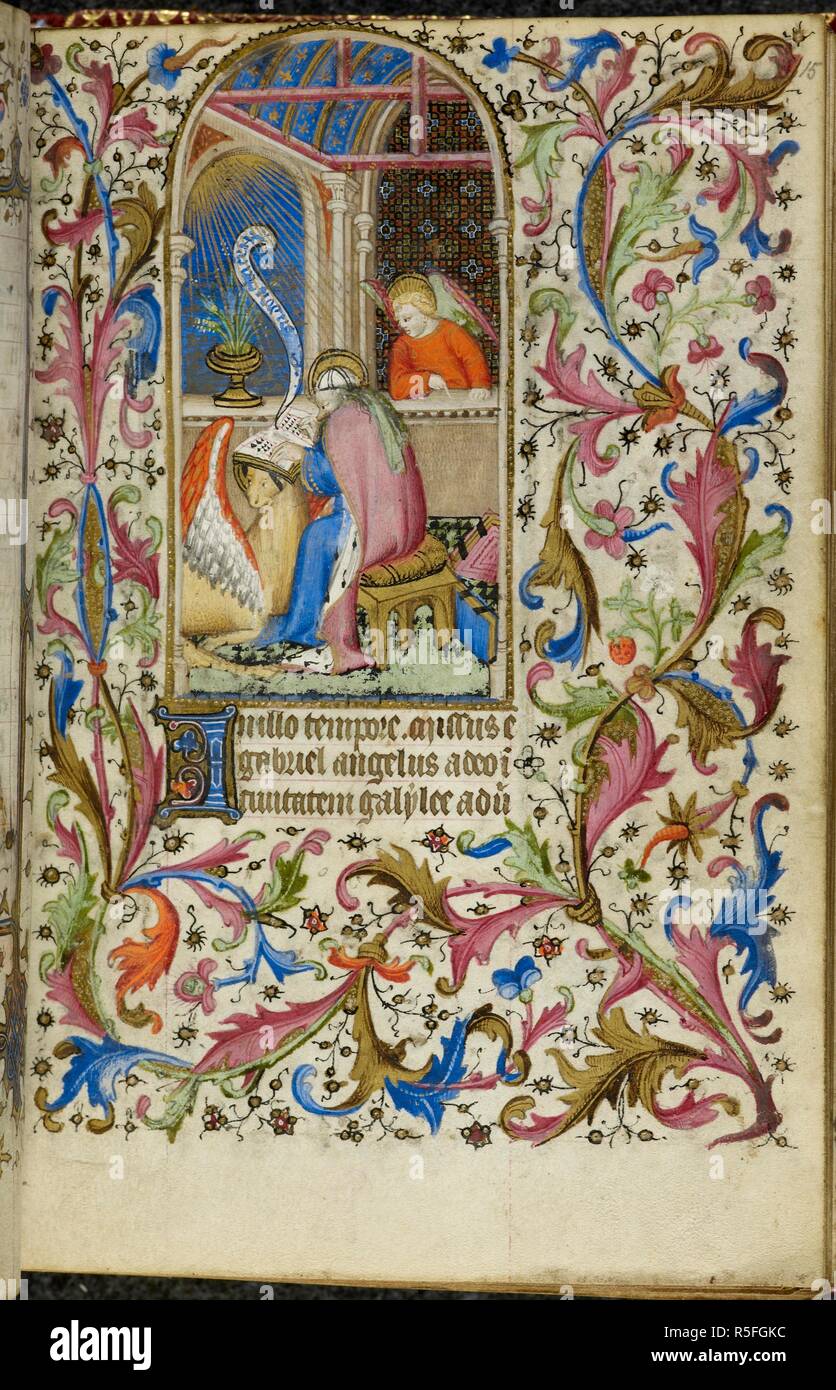 15
In illo tempore. Missus e
gabriel angelus a deo i
civitatem galylee a dn̄
alamy
Image ID: R5FGKC
www.alamy.com